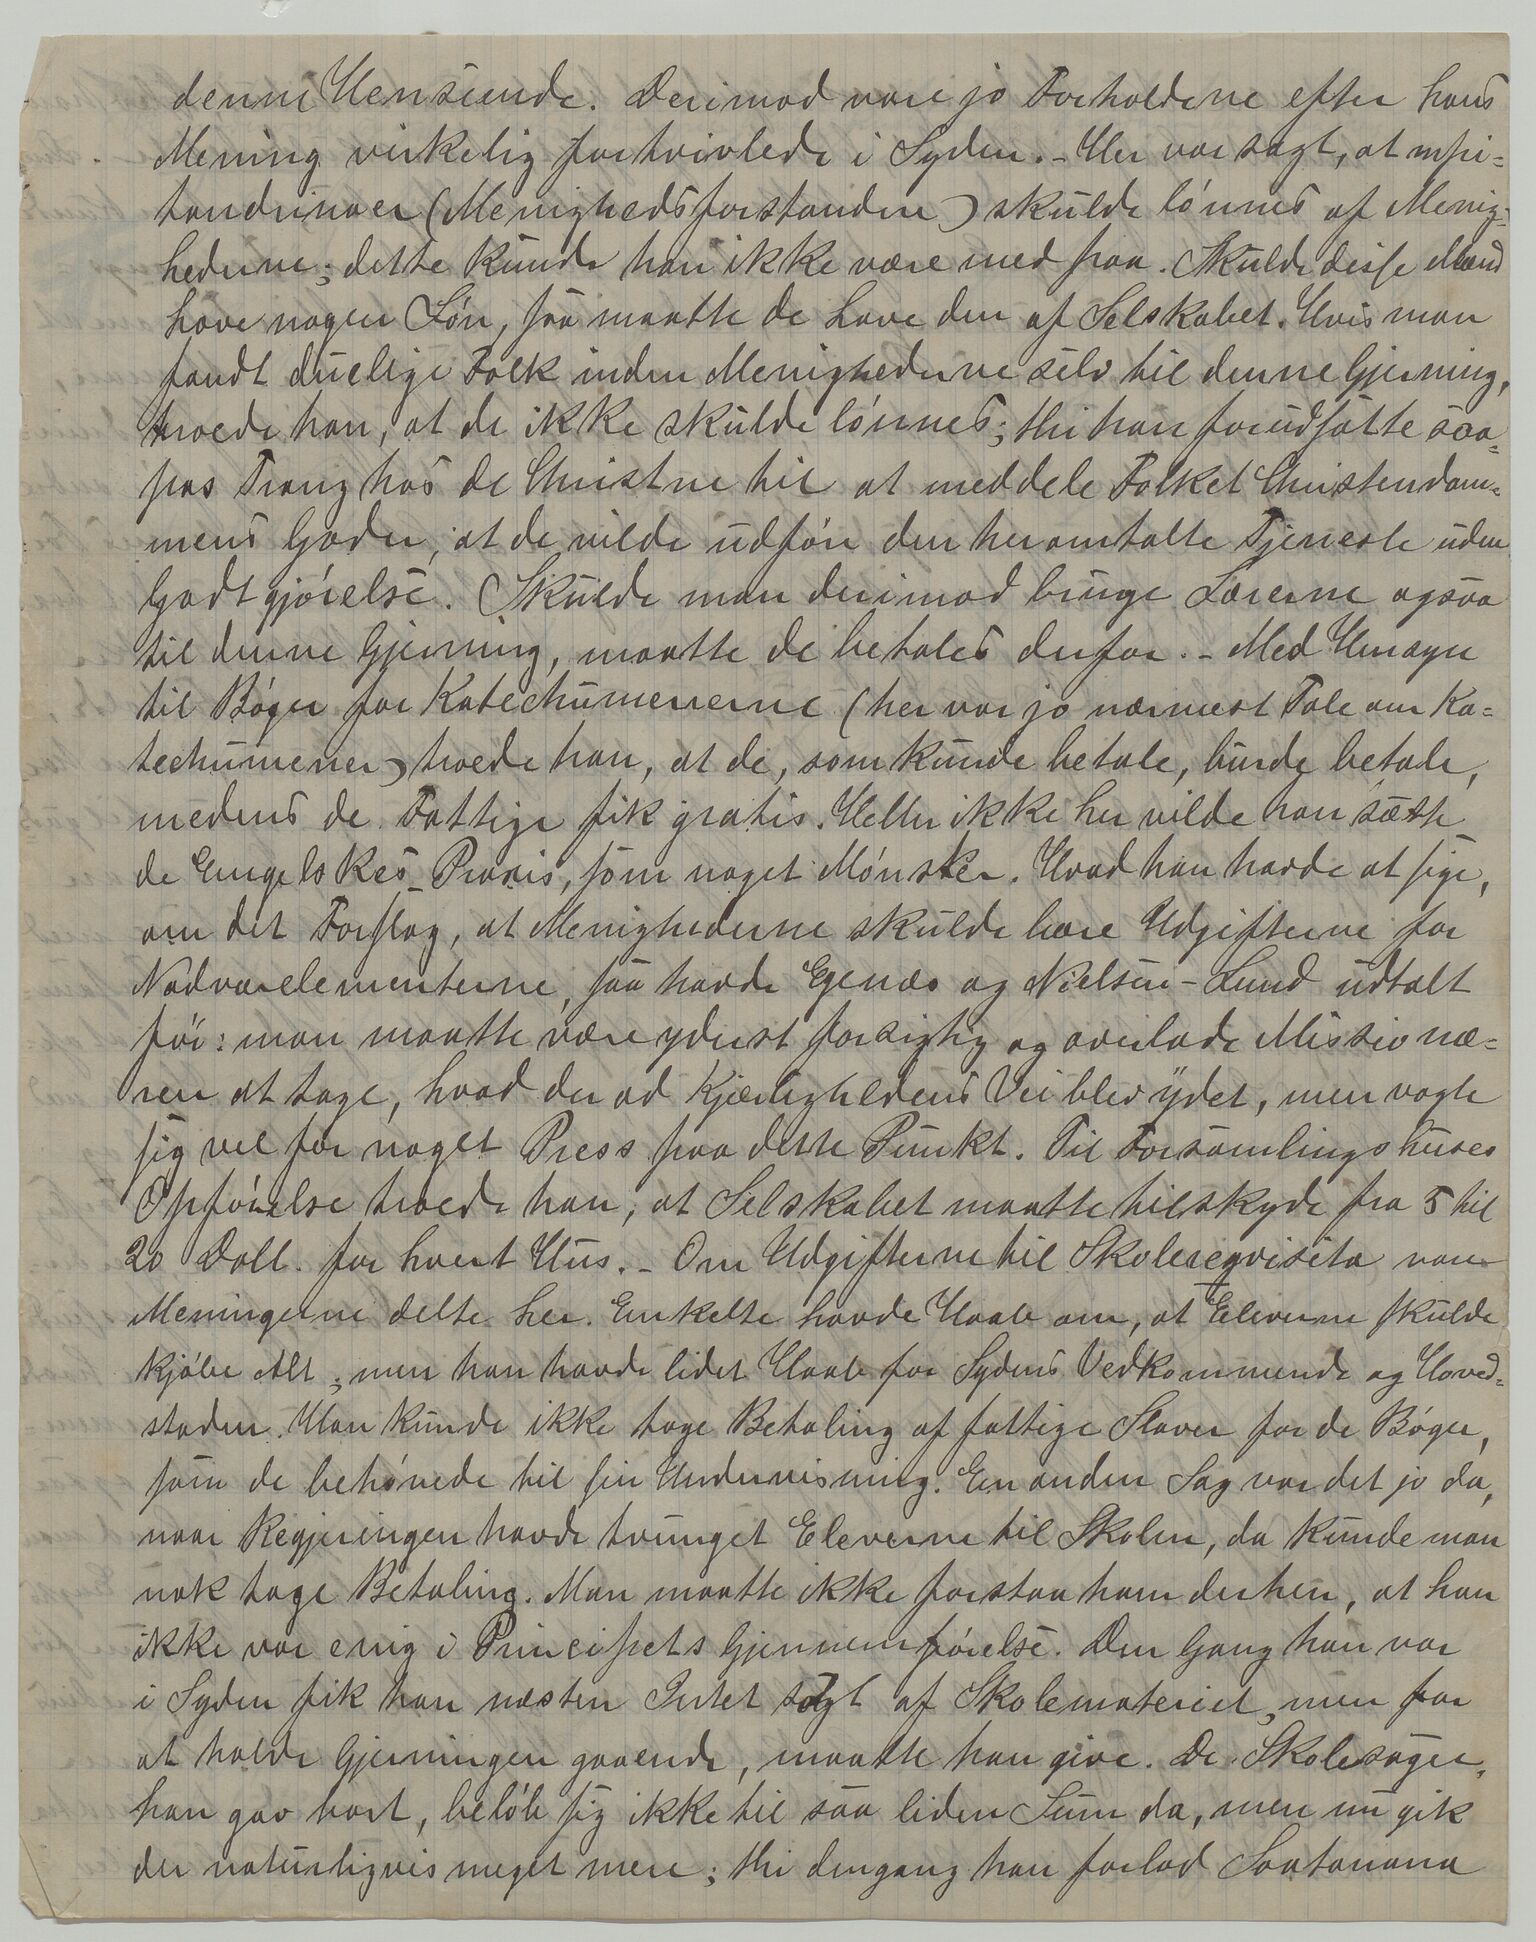 denne Henseende. Derimod vare jo Forholdene efter hans
Mening virkelig fortvivlede i Syden. – Her var sagt, at mpi=
tandrinaer (Menighedsforstandere) skulde lønnes af Menig-
hederne; dette kunde han ikke være med paa. Skulde disse Mænd
have nogen Løn, saa maatte de have den af Selskabet. Hvis man
fandt duelige Folk inden Menighederne selv til denne Gjerning,
troede han, at de ikke skulde lønnes; thi han forudsatte saa=
pas Trang hos de Christne til at meddele Folket Christendom=
mens Goder, at de vilde udføre den her omtalte Tjeneste uden
Godtgjørelse. Skulde man derimod bruge Lærerne ogsaa
til denne Gjerning, maatte de betales derfor. – Med Hensyn
til Bøger for Katechumenerne (her var jo nærmest Tale om Ka=
techumener) troede han, at de, som kunde betale, burde betale,
medens de Fattige fik gratis. Heller ikke her vilde han sætte
de Engelskes Praxis, som noget Mønster. Hvad han havde at sige,
om det Forslag, at Menighederne skulde bære Udgifterne for
Nadverelementerne, saa havde Egenæs og Nielsen-Lund udtalt
før: man maatte være yderst forsigtig og overlade Missionæ=
ren at tage, hvad der ad Kjærlighedens Vei blev ydet, men vogte
sig vel for noget Press paa dette Punkt. Til Forsamlingshuses
Opførelse troede han, at Selskabet maatte tilskyde fra 5 til
20 Doll. for hvert Hus. – Om Udgifterne til Skolereqvisita vare
Meningerne delte her. Enkelte havde Haab om, at Eleverne skulde
kjøbe Alt; men han havde lidet Haab for Sydens Vedkommende og Hoved=
staden. Han kunde ikke tage Betaling af fattige Slaver for de Bøger,
som de behøvede til sin Undervisning. En anden Sag var det jo da,
naar Regjeringen havde tvunget Eleverne til Skolen, da kunde man
nok tage Betaling. Man maatte ikke forstaa ham derhen, at han
ikke var enig i Principets Gjennemførelse. Den Gang han var
i Syden fik han næsten Intet solgt af Skolemateriel, men for
at holde Gjerningen gaaende, maatte han give. De Skolesager,
han gav bort, beløb sig ikke til saa liden Sum da, men nu gik
der naturligvis meget mere; thi dengang han forlod Soatanana